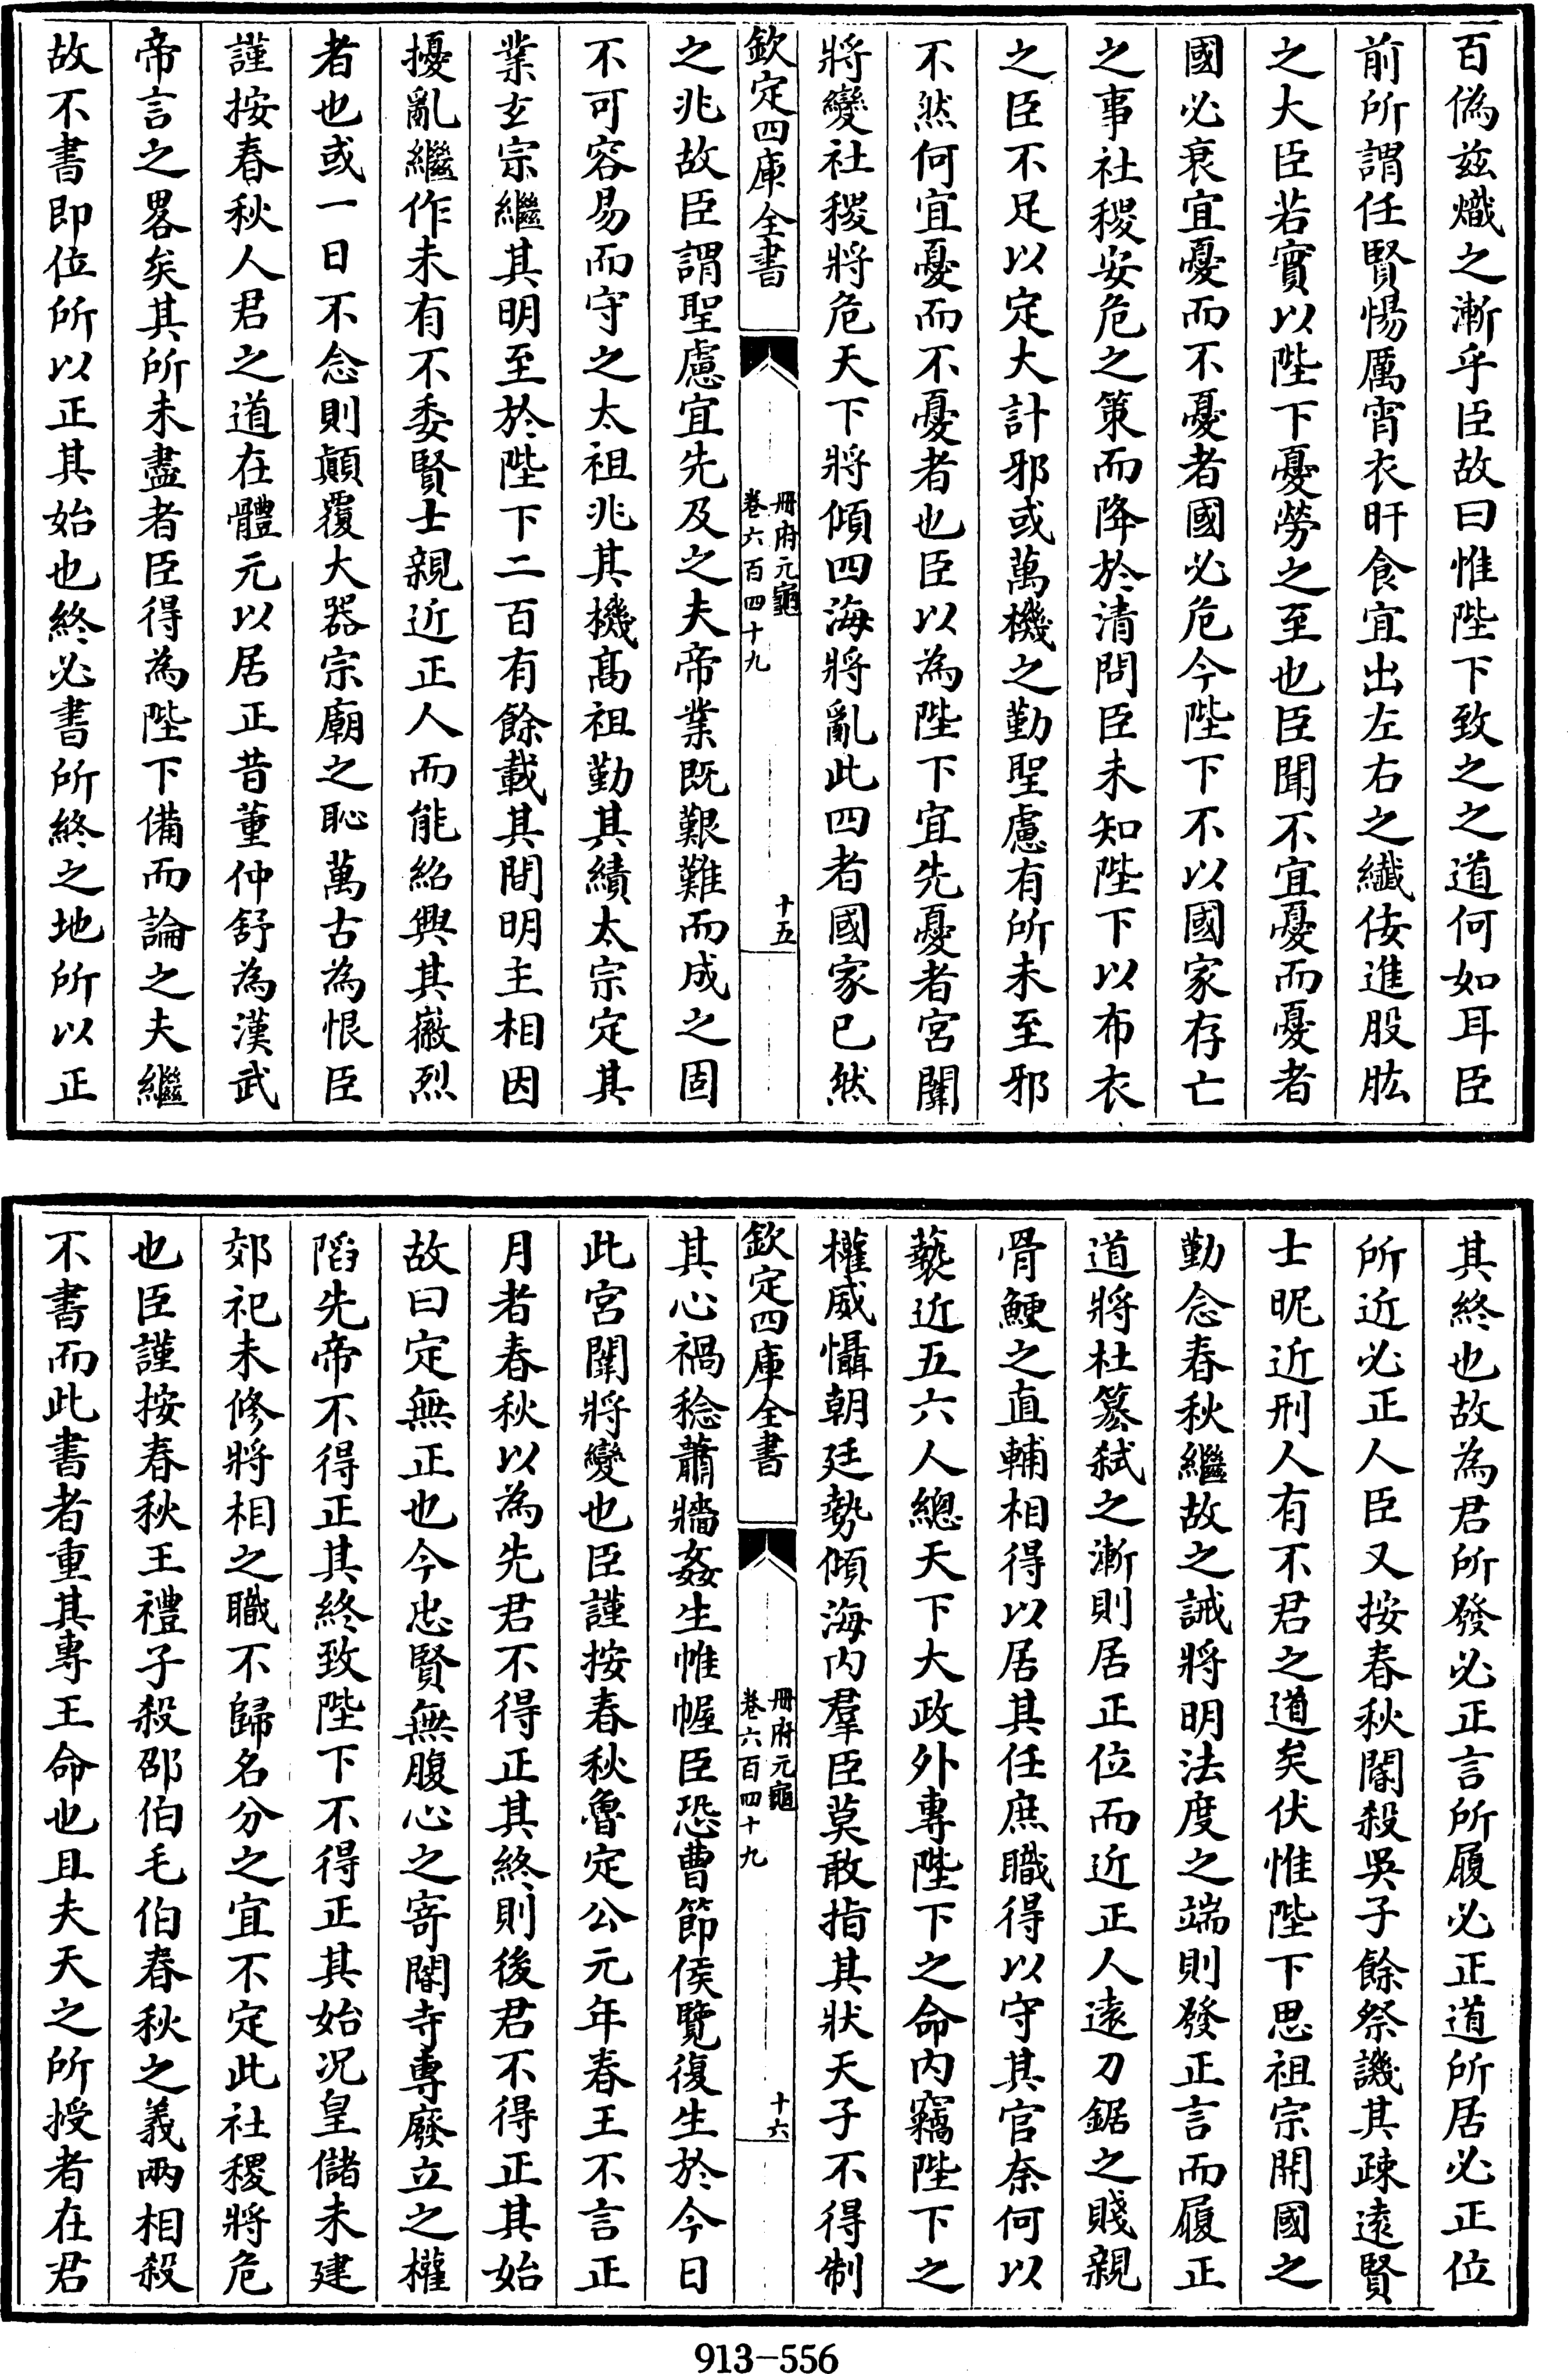 百偽兹熾之漸乎臣故曰惟陛下致之之道何如耳臣
前所謂任賢惕厲宵衣旰食宜出左右之纎佞進股肱
之大臣若實以陛下憂勞之至也臣聞不宜憂而憂者
國必衰宜憂而不憂者國必危今陛下不以國家存亡
之事社稷安危之策而降於清問臣未知陛下以布衣
之臣不足以定大計邪或萬機之勤聖慮有所未至邪
不然何宜憂而不憂者也臣以為陛下宜先憂者宮闈
將變社稷將危天下將傾四海將亂此四者國家已然
欽定四庫全書
冊府元龜
卷六百四十九
十五
之兆故臣謂聖慮宜先及之夫帝業既艱難而成之固
不可容易而守之太祖兆其機髙祖勤其績太宗定其
業玄宗繼其明至於陛下二百有餘載其間明主相因
擾亂繼作未有不委賢士親近正人而能紹興其徽烈
者也或一日不念則顛覆大器宗廟之恥萬古為恨臣
謹按春秋人君之道在體元以居正昔董仲舒為漢武
帝言之畧矣其所未盡者臣得為陛下備而論之夫繼
故不書即位所以正其始也終必書所終之地所以正
其終也故為君所發必正言所履必正道所居必正位
所近必正人臣又按春秋閽殺吳子餘祭譏其疎遠賢
士昵近刑人有不君之道矣伏惟陛下思祖宗開國之
勤念春秋繼故之誡將明法度之端則發正言而履正
道將杜簒弑之漸則居正位而近正人遠刀鋸之賤親
骨鯁之直輔相得以居其任庶職得以守其官奈何以
褻近五六人總天下大政外專陛下之命內竊陛下之
權威懾朝廷勢傾海内羣臣莫敢指其狀天子不得制
欽定四庫全書
冊府元龜
卷六百四十九
十六
其心禍稔蕭牆姦生帷幄臣恐曹節侯覽復生於今日
此宮闈將變也臣謹按春秋魯定公元年春王不言正
月者春秋以為先君不得正其終則後君不得正其始
故曰定無正也今忠賢無腹心之寄閽寺專廢立之權
陷先帝不得正其終致陛下不得正其始况皇儲未建
郊祀未修將相之職不歸名分之宜不定此社稷將危
也臣謹按春秋王禮子殺邵伯毛伯春秋之義兩相殺
不書而此書者重其專王命也且夫天之所授者在君
913-556